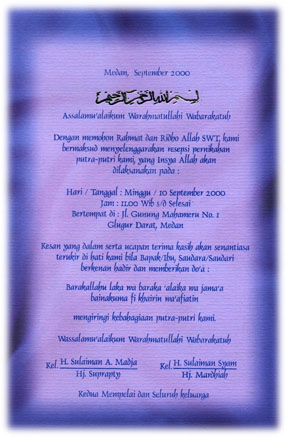 Medan, September 2000
بسم الله الرحمن الرحيم
Assalamu'alaikum Warahmatullahi Wabarakatuh
Dengan memohon Rahmat dan Ridho Allah SWT, kami
bermaksud menyelenggarakan resepsi pernikahan
putra-putri kami, yang Insya Allah akan
dilaksanakan pada :
Hari / Tanggal : Minggu / 10 September 2000
Jam : 11.00 Wib s/d Selesai
Bertempat di : Jl. Gunung Mahameru No. 1
Glugur Darat, Medan
Kesan yang dalam serta ucapan terima kasih akan senantiasa
terukir di hati kami bila Bapak/Ibu, Saudara/Saudari
berkenan hadir dan memberikan do'a :
Barakallahu laka wa baraka 'alaika wa jama'a
bainakuma fi khairin wa'afiatin
mengiringi kebahagiaan putra-putri kami.
Wassalamu'alaikum Warahmatullahi Wabarakatuh
Kel. H. Sulaiman A. Madja
Hj. Suprapty
Kel. H. Sulaiman Syam
Hj. Mardhiah
Kedua Mempelai dan Seluruh keluarga